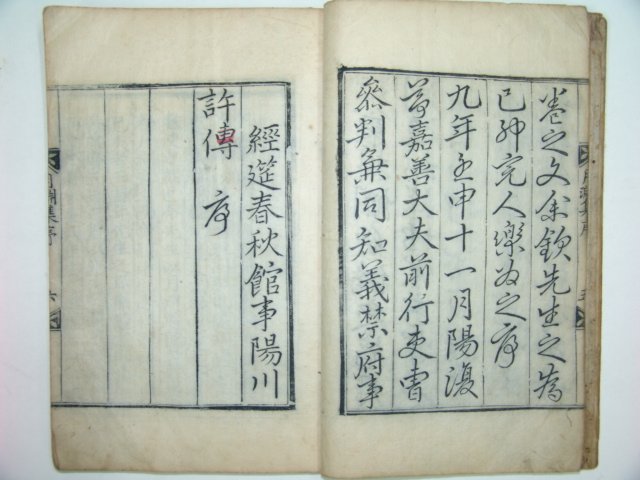 卷之文余欽先生之為
己卯完人樂為之序
九年壬申十一月陽復
節嘉善大夫前行吏曹
參判兼同知義禁府事
經筵春秋館事陽川
許傳 序
集序 六